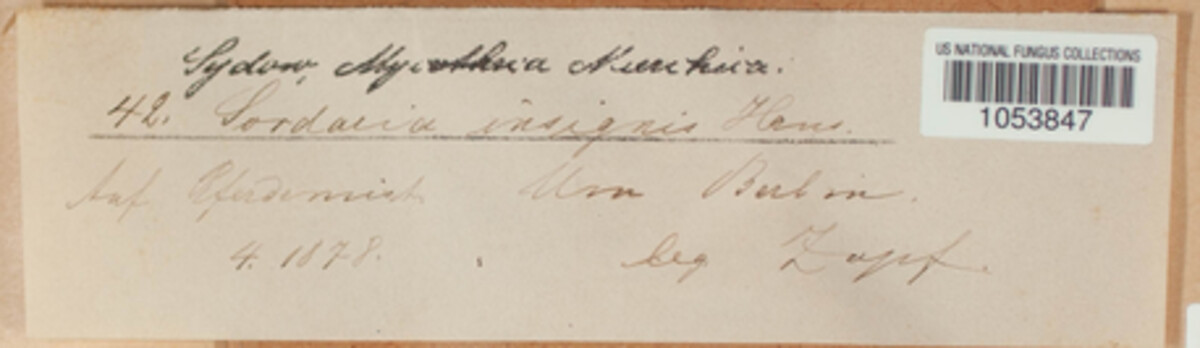 Sydow, Mycotheca Marchica.
42. Sordaria insignis Hans.
Auf Pferdemist Um Berlin.
4. 1878. leg Zopf.
US NATIONAL FUNGUS COLLECTIONS
1053847